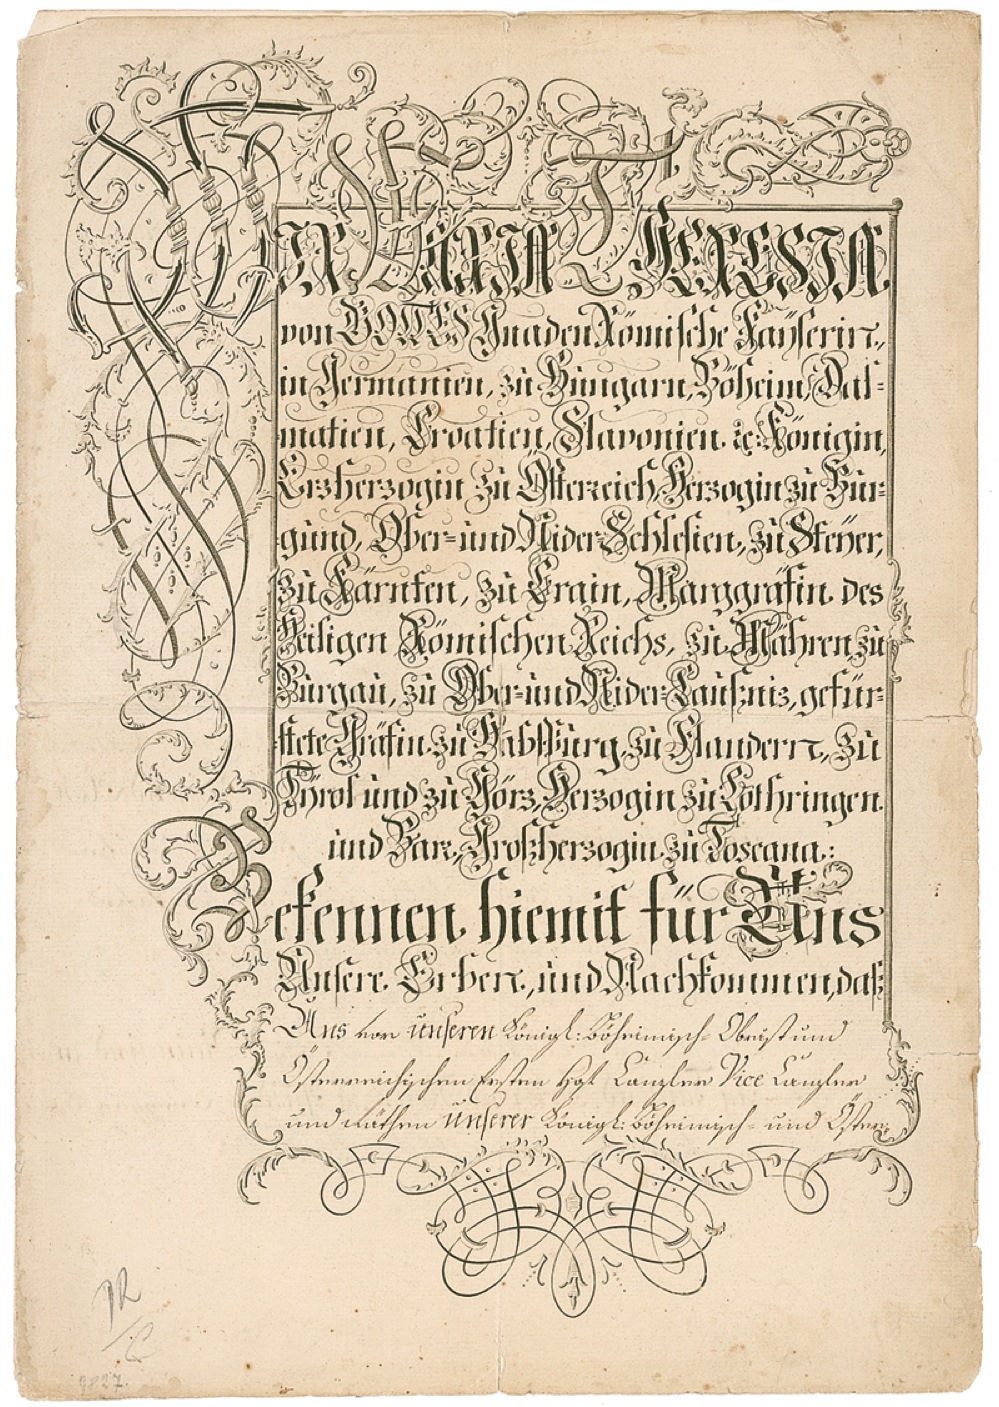 WIR MARIA THERESIA
von GOTTES Gnaden Römische Käÿserin,
in Germanien, zu Hungarn, Böheim, Dal-
matien, Croatien, Slavonien. ꝛc: Königin,
Erzherzogin zu Österreich, Herzogin zu Bur-
gund, Ober- und Nider-Schlesien, zu Steÿer,
zu Kärnten, zu Crain, Marggräfin des
Heiligen Römischen Reichs, zu Mähren, zu
Burgau, zu Ober- und Nider-Laußniz, gefür-
stete Gräfin zu Habspurg, zu Flandern, zu
Tÿrol und zu Görz, Herzogin zu Lothringen
und Bar, Großherzogin zu Toscana:
Bekennen hiemit für Uns
Unsere Erben, und Nachkommen, daß
Uns von unseren Königl: Böheimisch- Obrist und
Österreichischen Ersten Hof Canzler Vice Canzler
und räthen unserer Königl: Böheimisch- und Öster-
9827